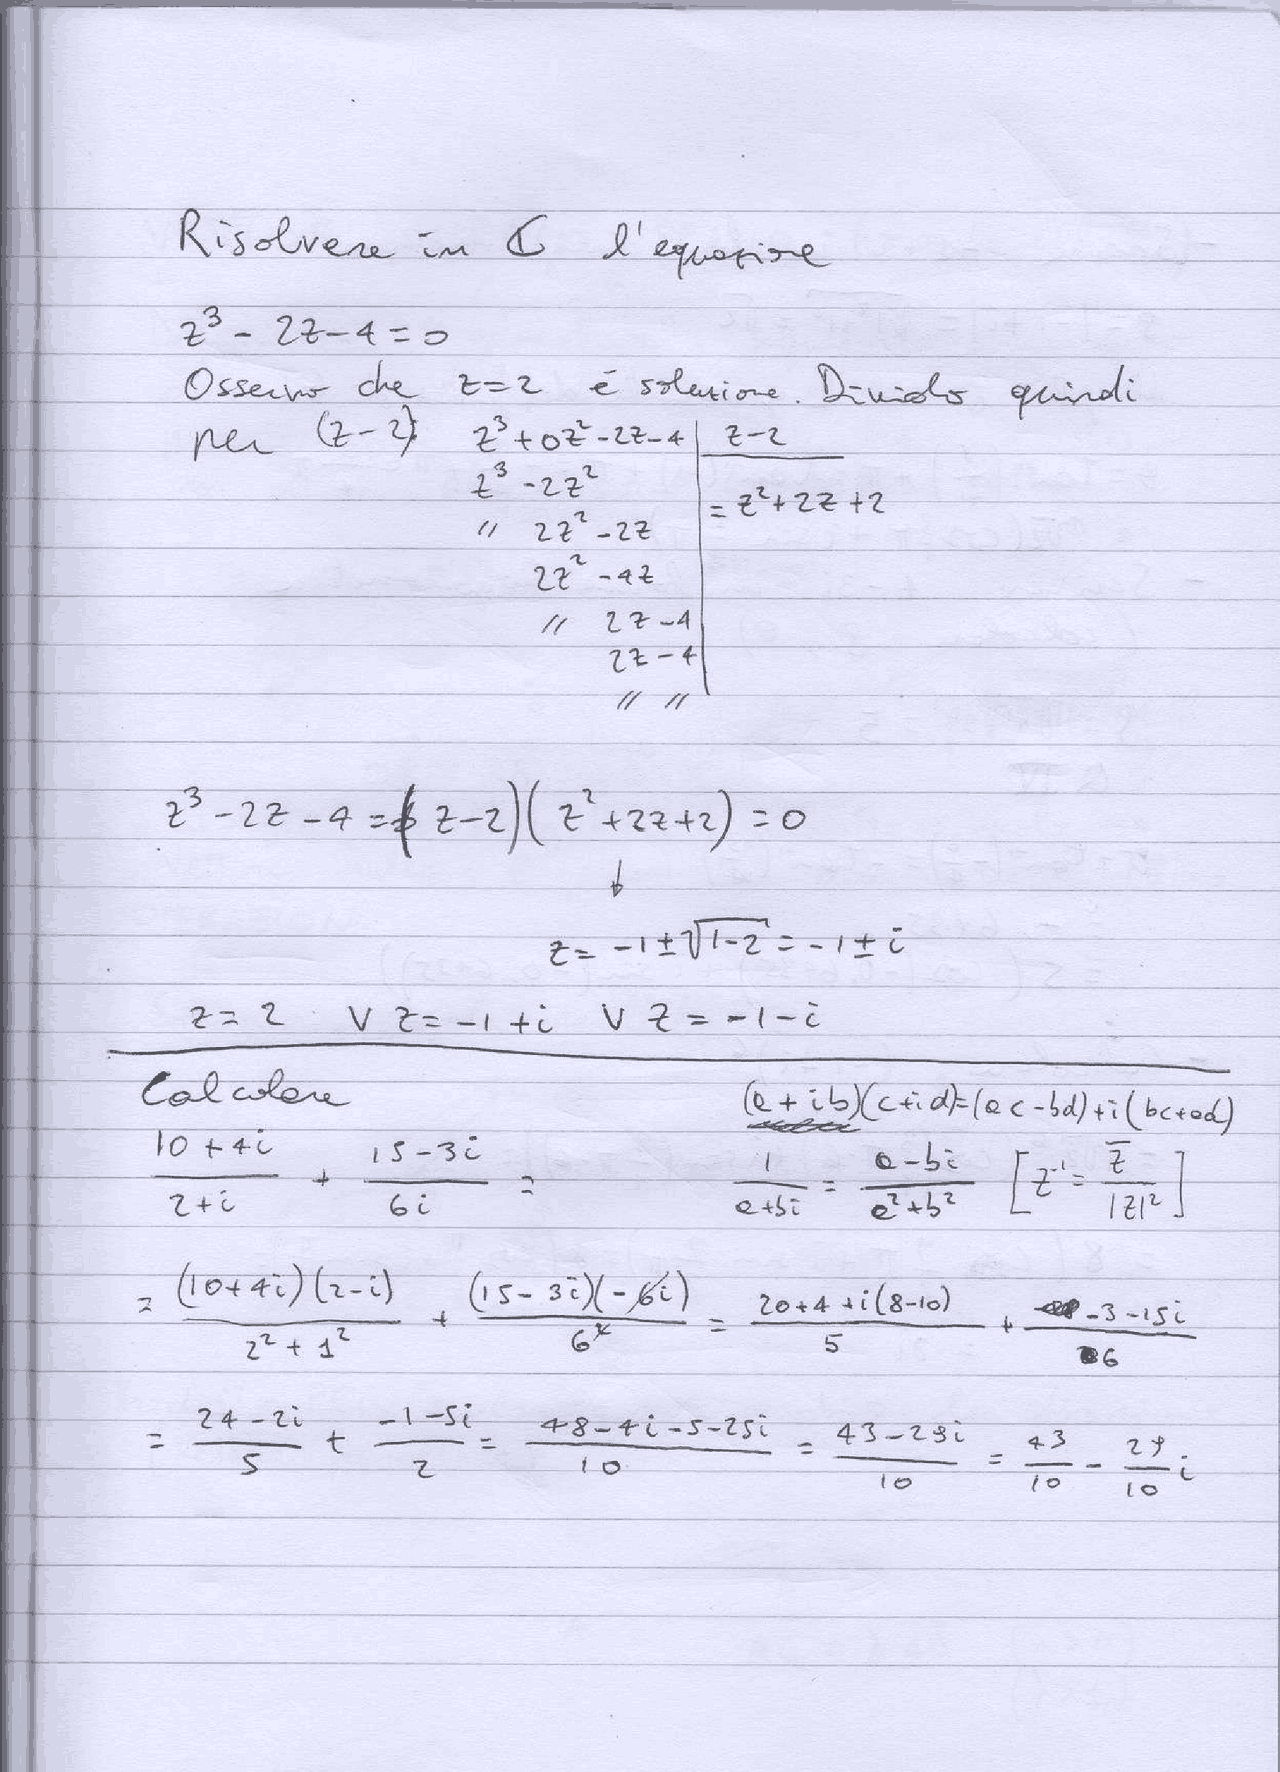 Risolvere in ℂ l'equazione
z³ - 2z - 4 = 0
Osservo che z=2 é soluzione. Divido quindi
per (z-2): z³+0z²-2z-4 | z-2
z³ -2z²
= z²+2z+2
" 2z² -2z
2z² -4z
" 2z-4
2z-4
" "
z³ -2z -4 = (z-2)(z²+2z+2) = 0
↓
z = -1±√(1-2) = -1±i
z=2 ∨ z=-1+i ∨ z=-1-i
Calcolare
(a+ib)(c+id)=(ac-bd)+i(bc+ad)
(10+4i)/(2+i) + (15-3i)/(6i) =
1/(a+bi) = (a-bi)/(a²+b²) [z⁻¹ = z̄/|z|²]
= (10+4i)(2-i)/(2²+1²) + (15-3i)(-6i)/6² = (20+4+i(8-10))/5 + (-3-15i)/6
= (24-2i)/5 + (-1-5i)/2 = (48-4i-5-25i)/10 = (43-29i)/10 = 43/10 - 29/10 i